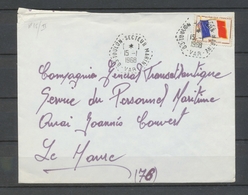 TOULON SECTEUR
15-1
1968
VAR
Compagnie Général Transatlantique
Service du Personnel Maritime
Quai Joannès Couvert
Le Havre
(76)